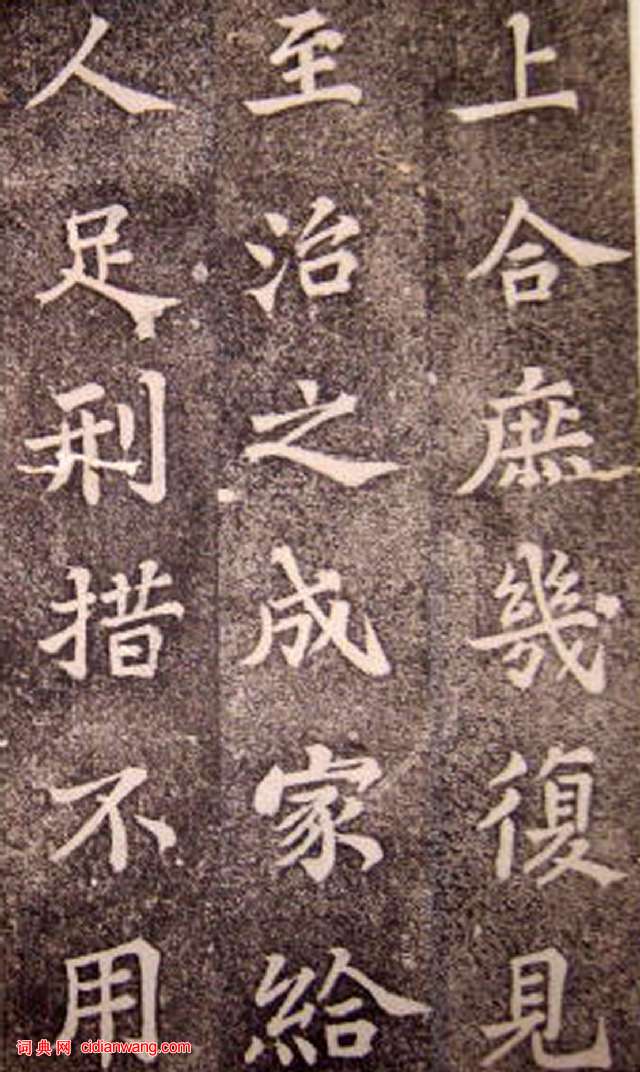 上合庶幾復見
至治之成家給
人足刑措不用
词典网 cidianwang.com